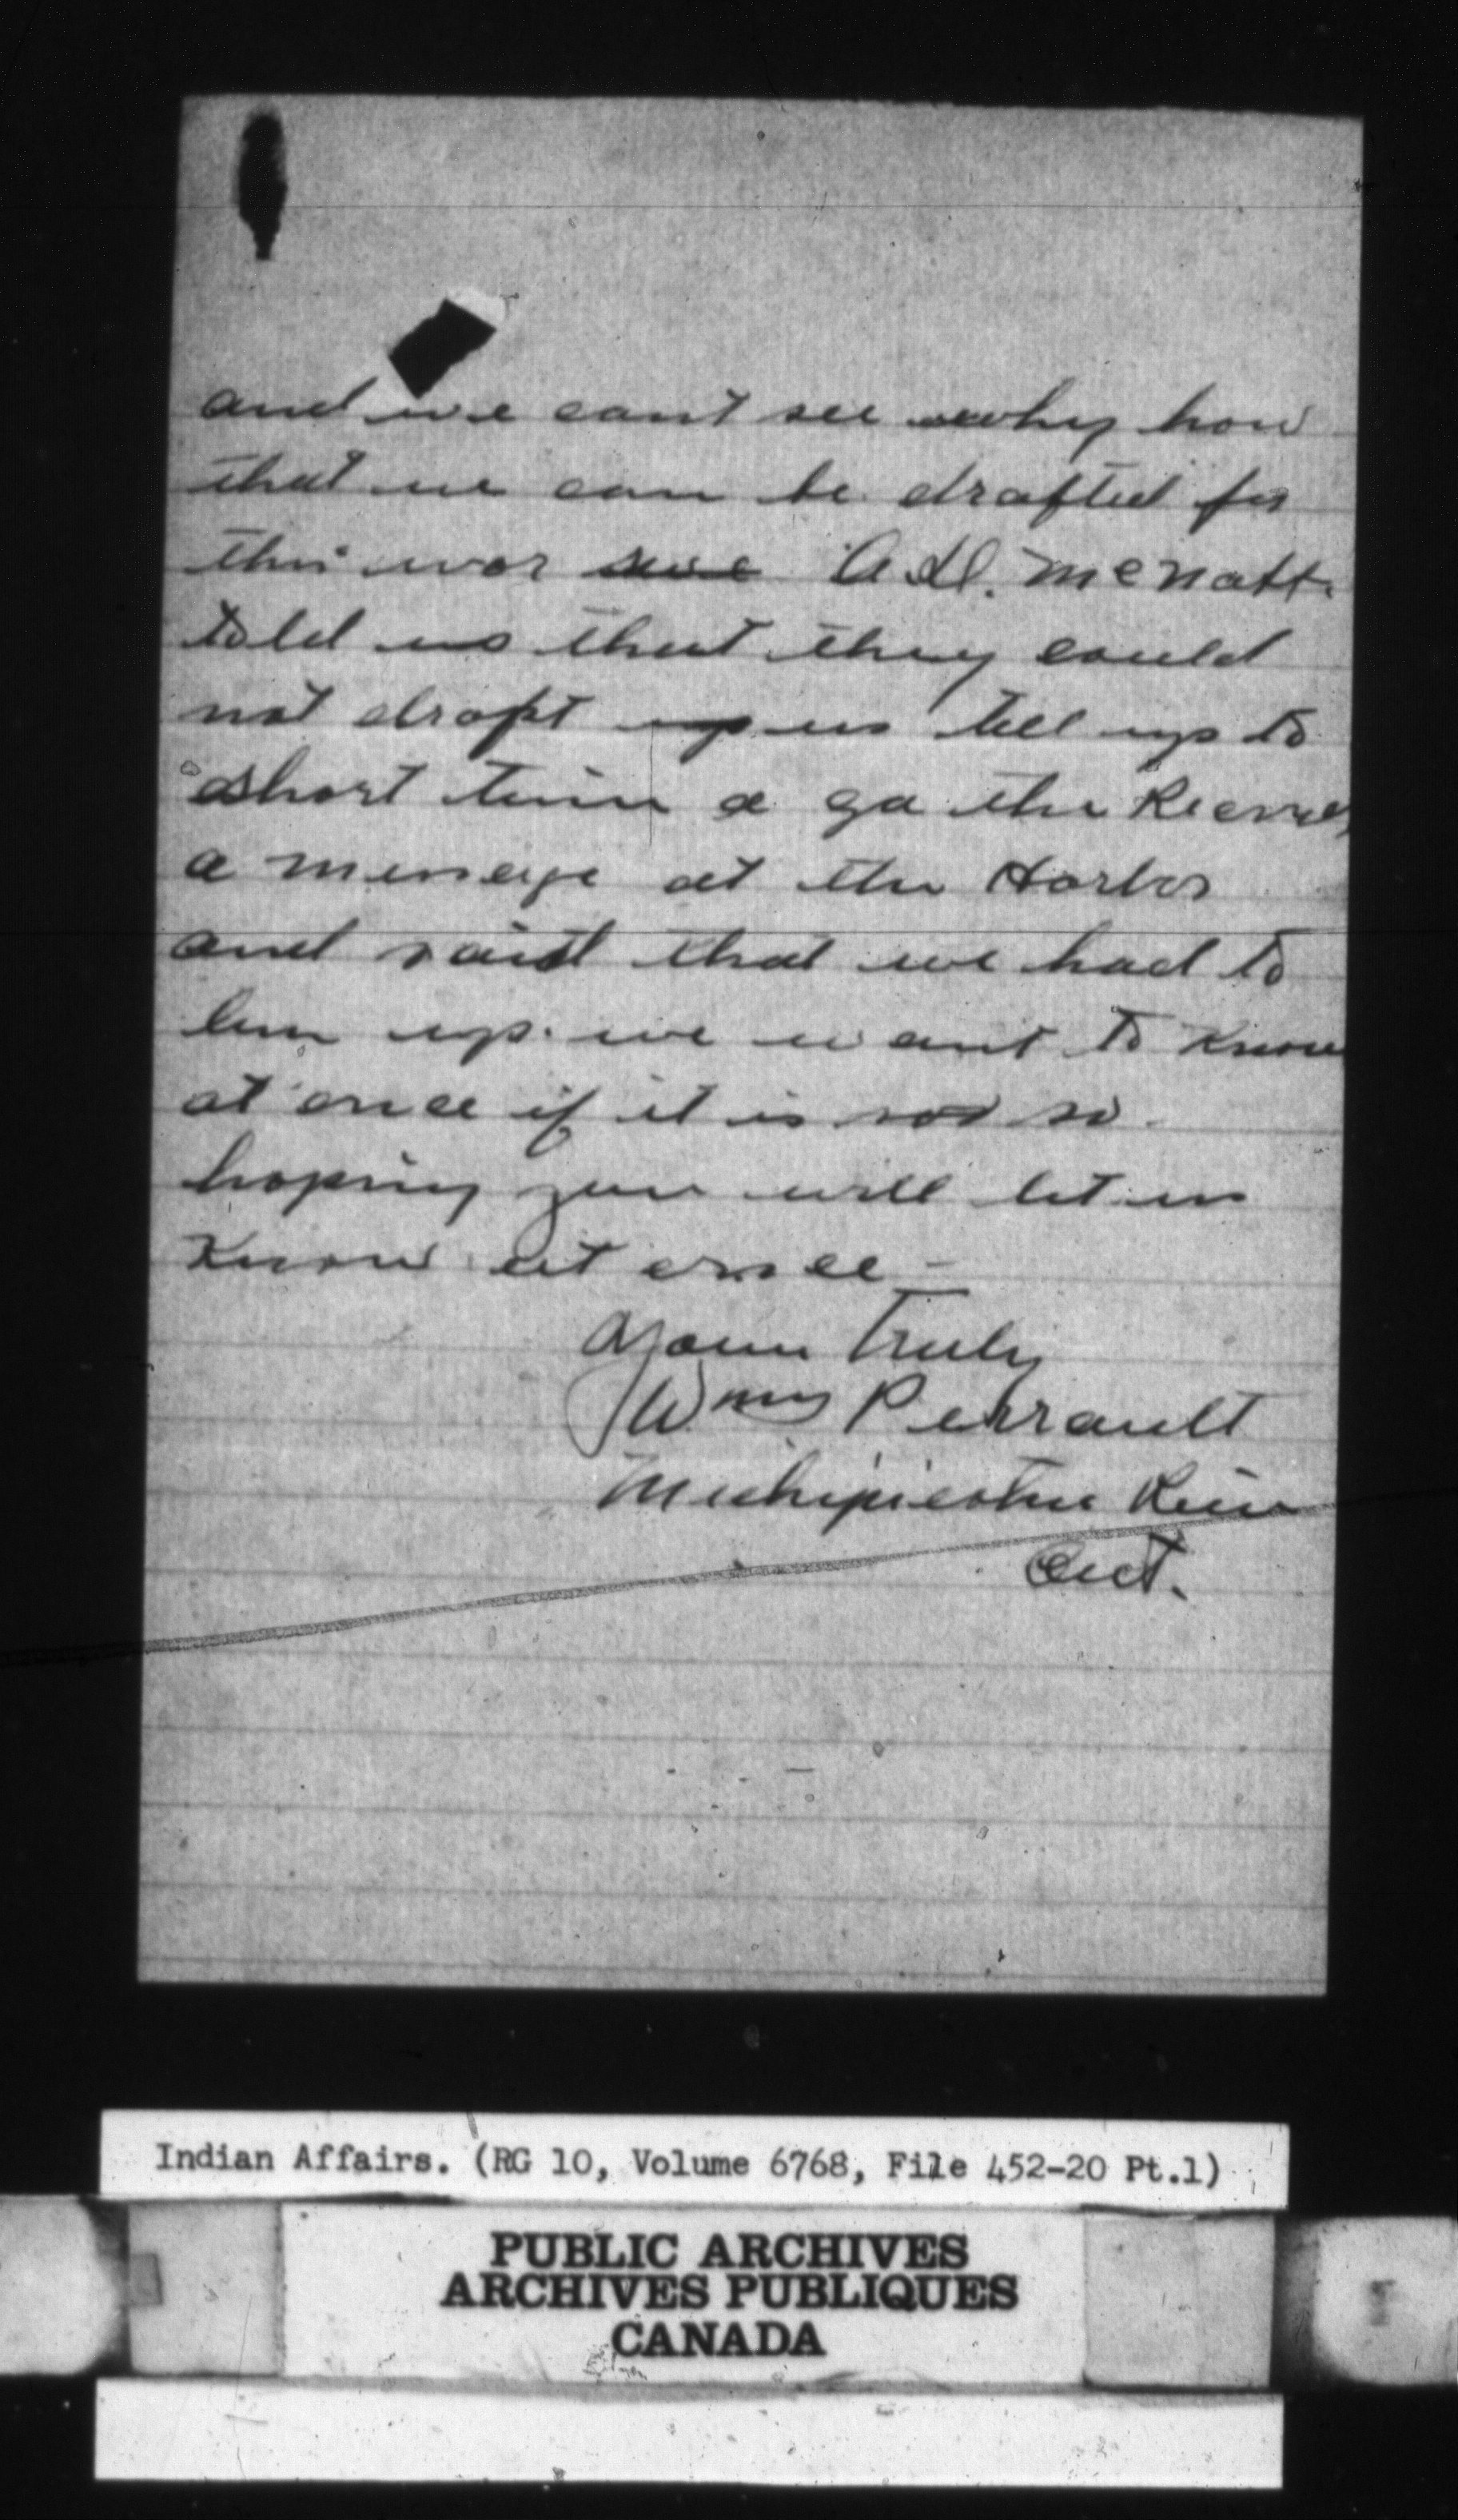 and we cant see why how
that we can be drafted for
this war A.D. McNabb.
told us that they could
not draft us till up to
a short time a go the Recived
a message at the Harbor
and said that we had to
up. we want to know
at once if it is not so.
hoping you will let us
Know at once -
Yours Truly
Perrault
Michipicoten River
Ont.
Indian Affairs. (RG 10, Volume 6768, File 452-20 Pt.1)
PUBLIC ARCHIVES
ARCHIVES PUBLIQUES
CANADA